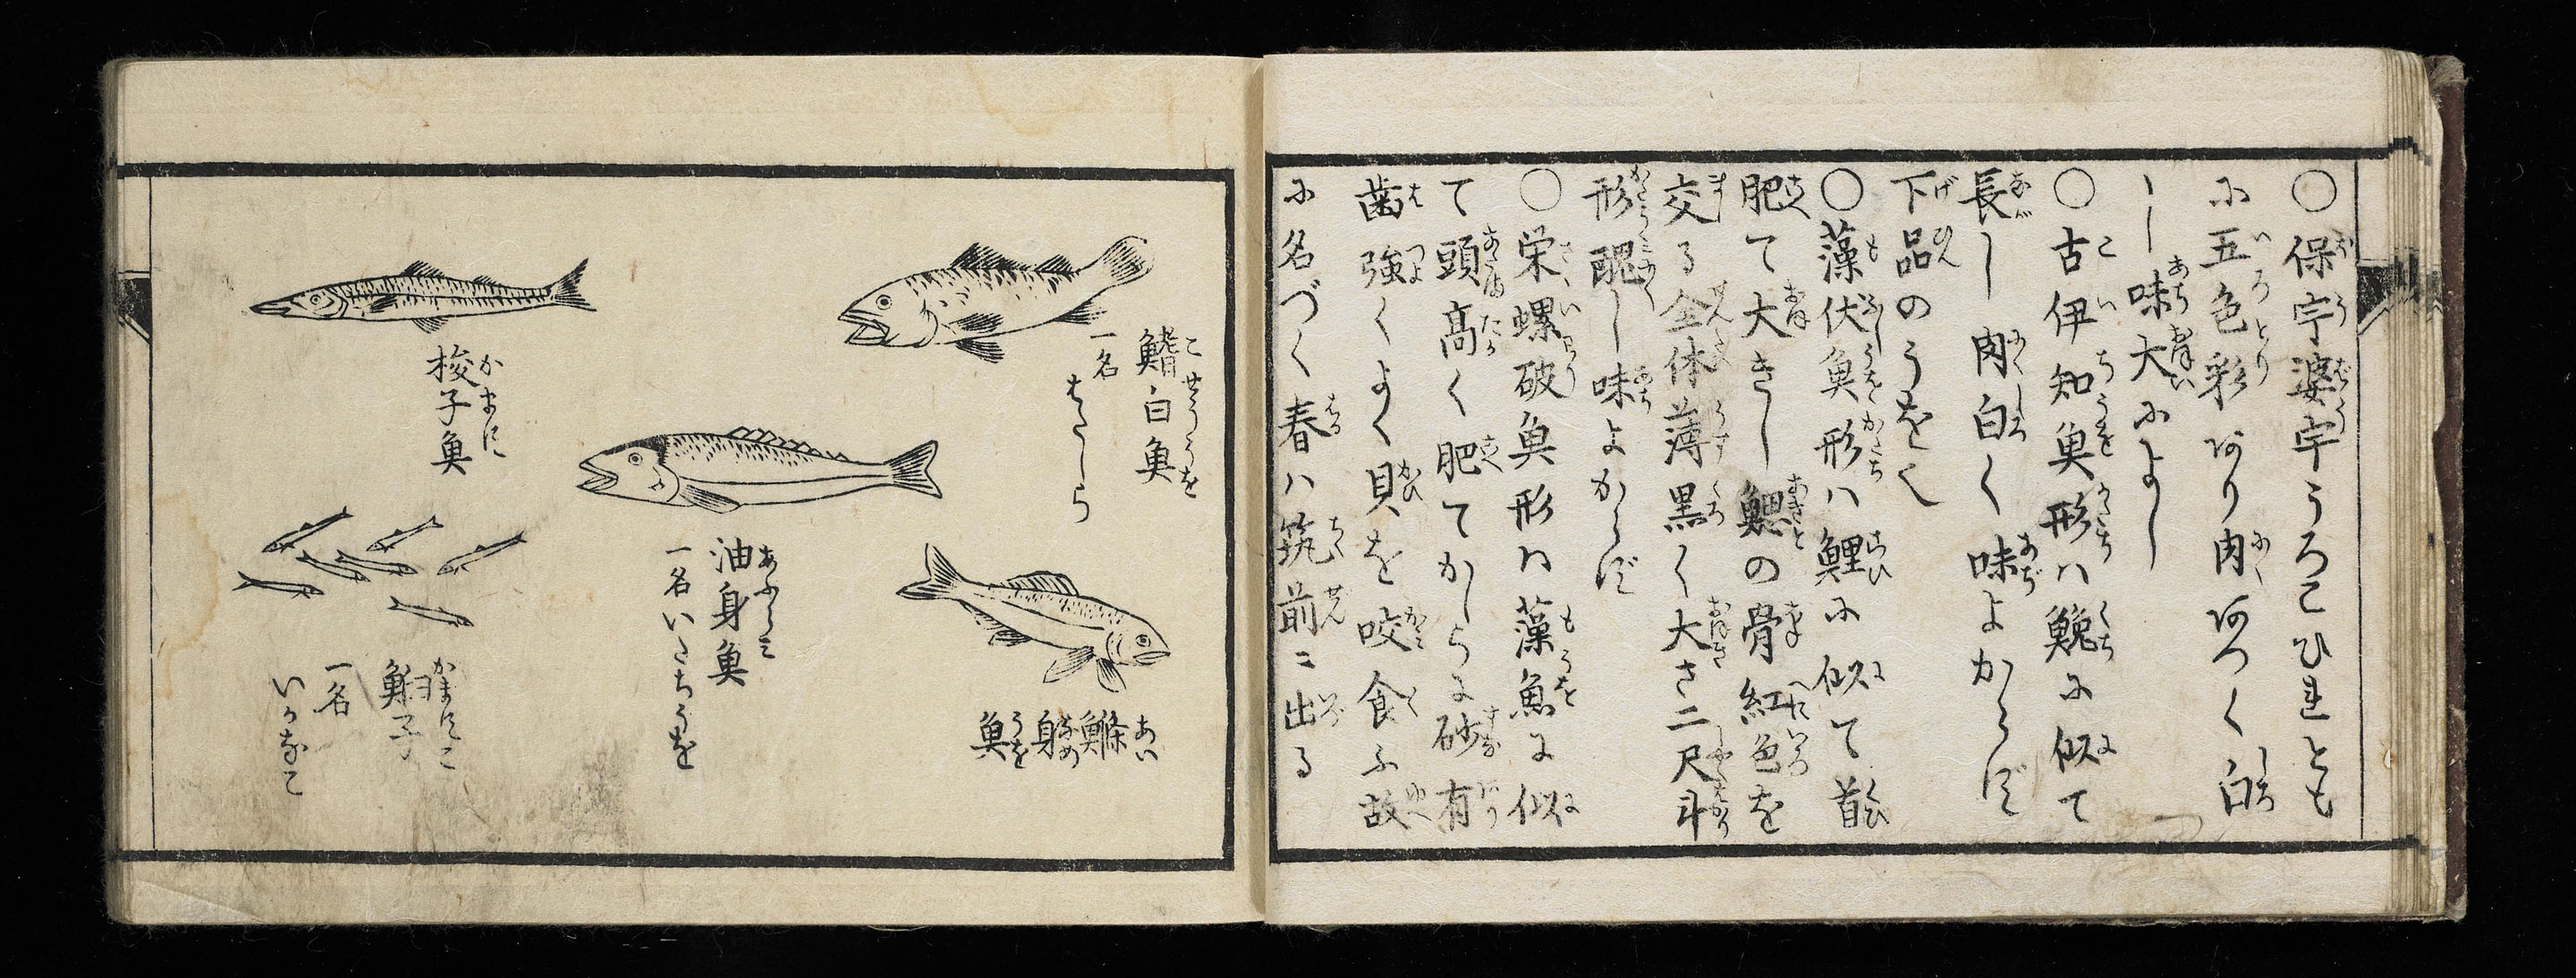 〇保宇婆宇うろこひれとも
に五色彩あり肉あつく白
し味大によし
〇古伊知魚形ハ鮸に似て
長し肉白く味よからず
下品のうを也
〇藻伏魚形ハ鯉に似て首
肥て大きし鰓の骨紅色を
交る全体薄黒く大さ二尺斗
形醜し味よからず
〇栄螺破魚形ハ藻魚に似
て頭高く肥てかしらに砂有
歯強くよく貝を咬食ふ故
に名づく春ハ筑前ニ出る
鰭白魚
こせううを
一名
鰷身魚
あい
うを
油身魚
あふらミ
一名いたちうを
梭子魚
かます
子
かますこ
一名
いかなこ